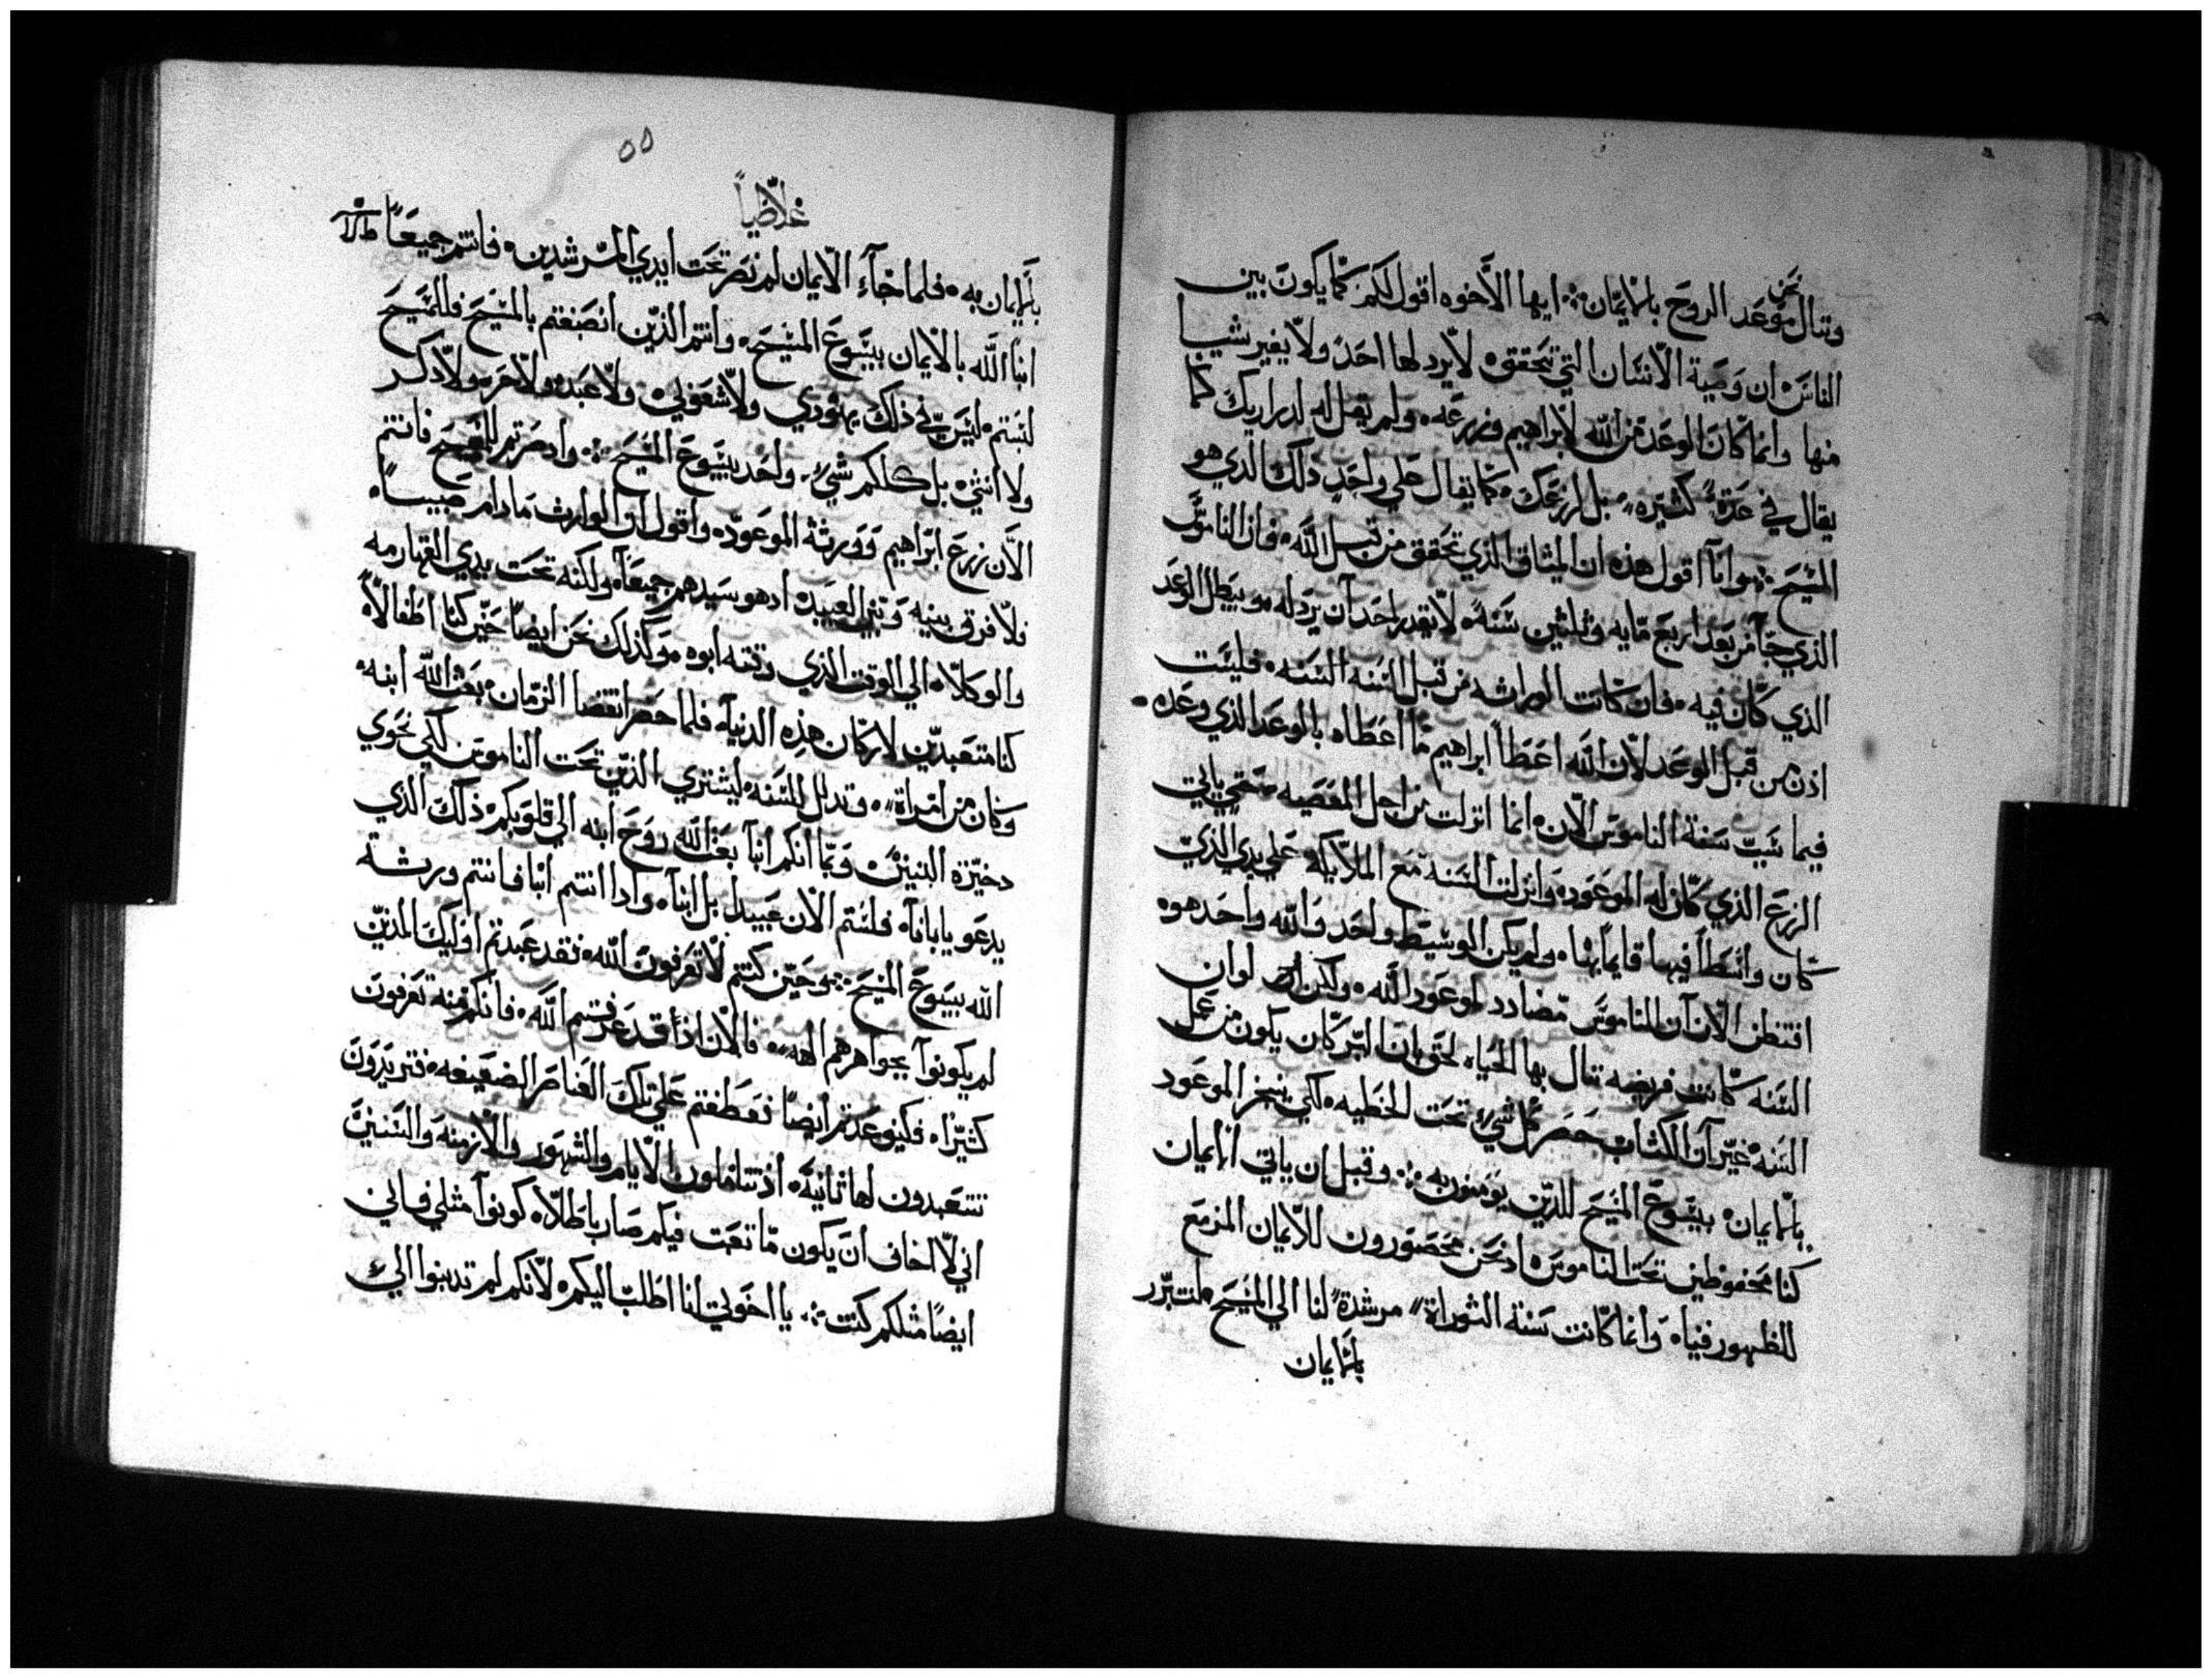 نحن
وننال موعد الروح بالايمان ܀ ايها الاخوه اقول لكم كما يكون بين
الناس ان وصية الانسان التي تحققه لا يرد لها احد ولا يغير شيا
منها وانما كان الوعد من الله لابراهيم وزرعه ولم يقل له لدراريك كما
يقال في عدة كثيره بل لزرعك كما يقال علي واحد ذلك الدي هو
المسيح ܀ وانا اقول هذه ان الميثاق الذي تحقق من قبل الله فان الناموس
الذي جا من بعد اربع مايه وثلثين سنة لا يقدر احد ان يرد له ويبطل الوعد
الذي كان فيه فان كانت الوراثه من قبل السنه السنه فليست
اذن من قبل الوعد لان الله اعطا ابراهيم ما اعطاه بالوعد الذي وعده
فيما سبب سنة الناموس الان انما انزلت من اجل المعصيه حتي ياتي
الزرع الذي كان له الموعود وانزلت السنه مع الملايكه علي يدي الذي
كان واسطا فيها قايما بها ولم يكن الوسيط واحد والله واحد هو
افتظن الان ان الناموس مضادد لموعود الله ولكن لو ان
السنه كانت فريضه تنال بها الحياه لحق بان البر كان يكون من عمل
السنه غير ان الكتاب حصر كل شي تحت الخطيه لكي ينجز الموعود
بالايمان بيسوع المسيح للدين يومنون به ܀ وقبل ان ياتي الايمان
كنا محفوظين تحت الناموس اد نحن محصورون للايمان المزمع
للظهور فيناه وانما كانت سنة التوراة مرشدة لنا الي المسيح لنتبرر
بالايمان
٥٥
غلاظيا
بالايمان به فلما جآء الايمان لم نصر تحت ايدي المرشدين فانتم جميعا
ابنا الله بالايمان بيسوع المسيح وانتم الذين انصبغتم بالمسيح فللمسيح
لبستم ليس في ذلك يهودي ولا شعوبي ولا عبد ولا حر ولا ذكر
ولا انثي بل كلكم شي واحد بيسوع المسيح ܀ واد صرتم للمسيح فانتم
الان زرع ابراهيم وورثة الموعود واقول ان الوارث ما دام صبيا
فلا فرق بينه وبين العبيد اد هو سيدهم جميعا ولكنه تحت يدي القهارمه
والوكلاه الي الوقت الذي وقته ابوه وكذلك نحن ايضا حين كنا اطفالا
كنا متعبدين لاركان هذه الدنيا فلما حضر انقضا الزمان بعث الله ابنه
وكان من امراة وتدلل للسنه ليشتري الذين تحت الناموس لكي نحوي
دخيرة البنين وبما انكم ابنا بعث الله روح ابنه الي قلوبكم ذلك الذي
يدعو يا ابانا فلستم الان عبيدا بل ابنا وادا انتم ابنا فانتم ورثة
الله بيسوع المسيح ܀ وحين كنتم لا تعرفون الله فقد عبدتم اوليك الذين
لم يكونوا بجواهرهم الهه فالان اذ قد عرفتم الله فانكم منه تعرفون
كثيراه فكيف عدتم ايضا فعطفتم علي تلك العناصر الضعيفه فتريدون
تتعبدون لها ثانية اذ تتاملون الايام والشهور والازمنه والسنين
اني لا اخاف ان يكون ما تعبت فيكم صار باطلا كونوا مثلي فاني
ايضا مثلكم كنت ܀ يا اخوتي انا اطلب اليكم لانكم لم تدنبوا الي